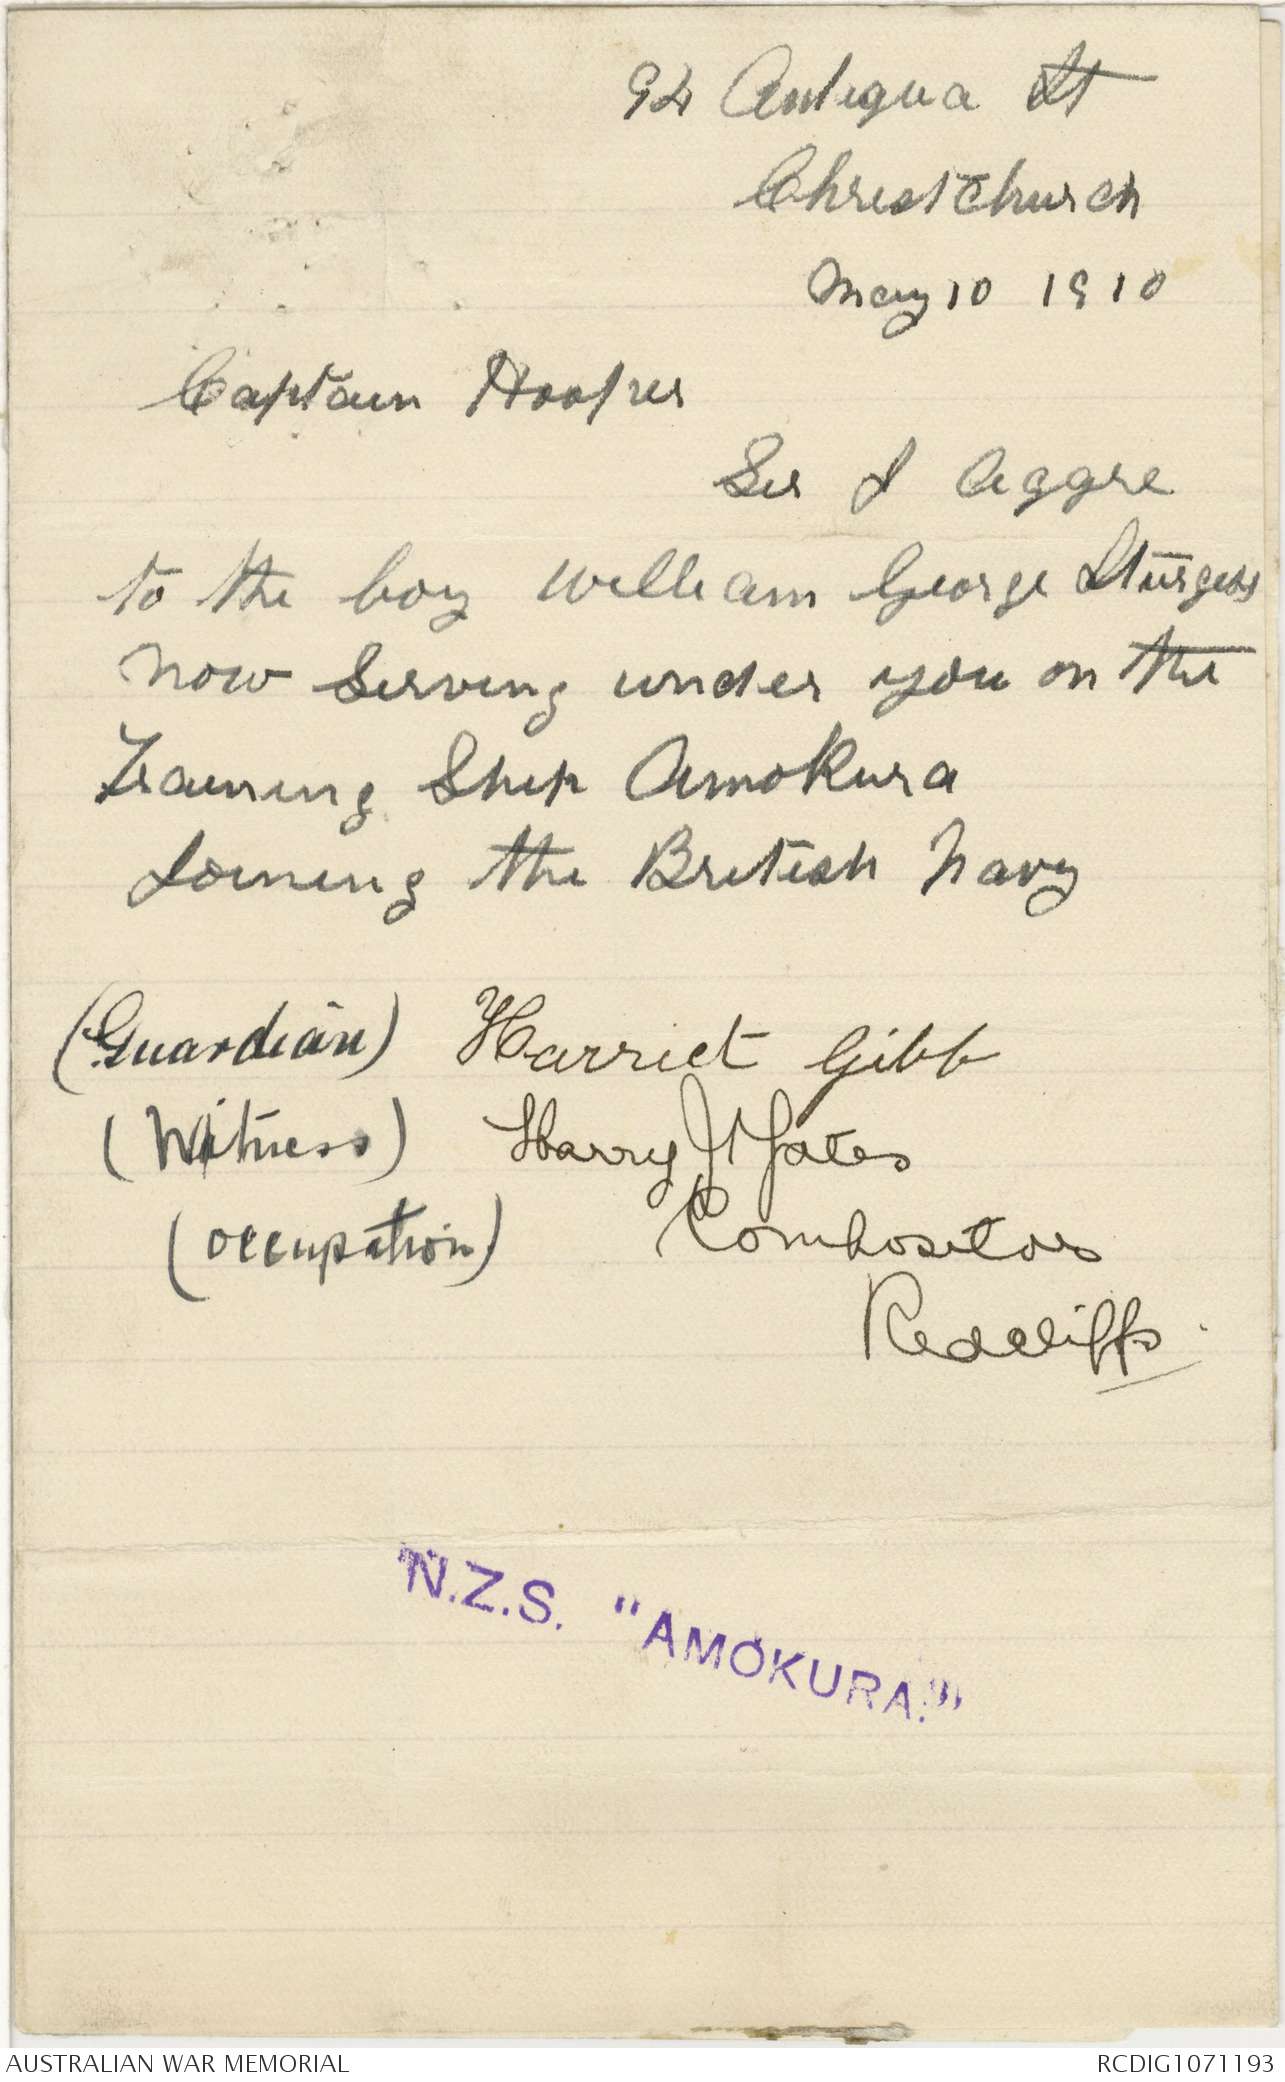 94 Antigua St
Christchurch
May 10 1910
Captain Hooper
Sir I Aggre
to the boy William George Sturgess
Now Serving under you on the
Training Ship Amokura
Joining the British Navy
(Guardian) Harriet Gibb
(Witness) Harry J Yates
(occupation) Compositor
Redcliffs.
N.Z.S. "AMOKURA."
AUSTRALIAN WAR MEMORIAL RCDIG1071193